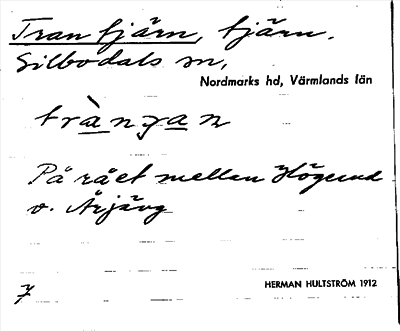 Trantjärn, tjärn.
Silbodals sn,
Nordmarks hd, Värmlands län
tràngan
På rået mellan Högerud
o. Årjäng
7
HERMAN HULTSTRÖM 1912